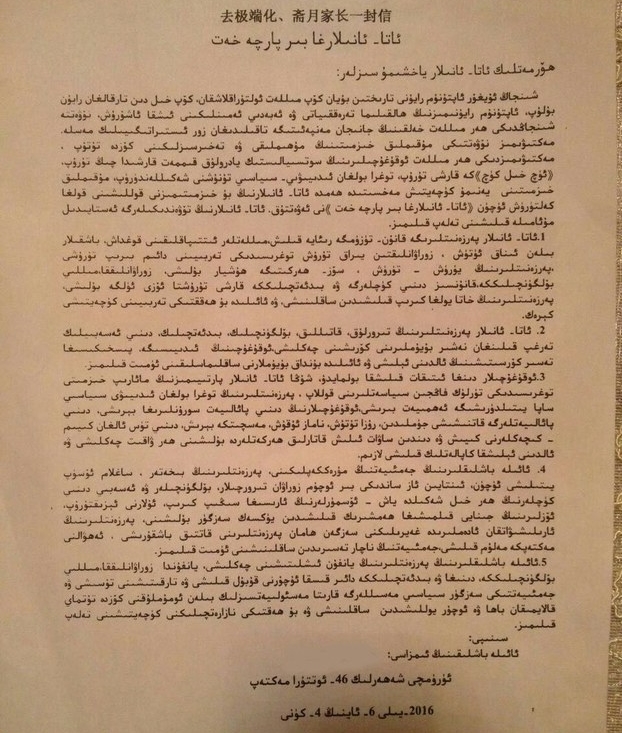 去极端化、斋月家长一封信
ئاتا- ئانىلارغا بىر پارچە خەت
ھۆرمەتلىك ئاتا- ئانىلار ياخشىمۇ سىزلەر:
شىنجاڭ ئۇيغۇر ئاپتونوم رايونى تارىختىن بۇيان كۆپ مىللەت ئولتۇراقلاشقان، كۆپ خىل دىن تارقالغان رايون
بولۇپ، ئاپتونوم رايونىمىزنىڭ ھالقىلىما تەرەققىياتى ۋە ئەبەدىي ئەمىنلىكىنى ئىشقا ئاشۇرۇش، نۆۋەتتە
شىنجاڭدىكى ھەر مىللەت خەلقىنىڭ جانىجان مەنپەئىتىگە تاقىلىدىغان زور ئىستراتىگىيىلىك مەسىلە.
مەكتىپىمىز نۆۋەتتىكى مۇقىملىق خىزمىتىنىڭ مۇھىملىقى ۋە تەخىرسىزلىكىنى كۆزدە تۇتۇپ ،
مەكتىپىمىزدىكى ھەر مىللەت ئوقۇغۇچىلىرىنىڭ سوتسىيالىستىك يادرولۇق قىممەت قارشىدا چىڭ تۇرۇپ،
«ئۈچ خىل كۈچ»كە قارشى تۇرۇپ، توغرا بولغان ئىدىيىۋى- سىياسىي تۇتۇشنى شەكىللەندۈرۈپ، مۇقىملىق
خىزمىتىنى يەنىمۇ كۈچەيتىش مەخسىتىدە ھەمدە ئاتا- ئانىلارنىڭ بۇ خىزمىتىمىزنى قوللىشىنى قولغا
كەلتۈرۈش ئۈچۈن «ئاتا- ئانىلارغا بىر پارچە خەت »نى ئەۋەتتۇق. ئاتا- ئانىلارنىڭ تۆۋەندىكىلەرگە ئەستايىدىل
مۇئامىلە قىلىشىنى تەلەپ قىلىمىز.
1.ئاتا- ئانىلار پەرزەنتلىرىگە قانۇن- تۈزۈمگە رىئايە قىلىش،مىللەتلەر ئىتتىپاقلىقىنى قوغداش، باشقىلار
بىلەن ئىناق ئۆتۈش ، زوراۋانلىقتىن يىراق تۇرۇش توغرىسىدىكى تەربىيىنى دائىم بىرىپ تۇرۇشى
،پەرزەنتلىرىنىڭ يۈرۈش - تۇرۇش ، سۆز- ھەركىتىگە ھۇشيار بولىشى، زوراۋانلىققا،مىللىي
بۆلگۈنچىلىككە،قانۇنسىز دىنىي كۈچلەرگە ۋە بىدئەتچىلىككە قارشى تۇرۇشتا ئۆزى ئۈلگە بولىشى،
پەرزەنتلىرىنىڭ خاتا يولغا كىرىپ قىلىشىدىن ساقلىنىشى، ۋە ئائىلىدە بۇ ھەقتىكى تەربىيىنى كۈچەيتىشى
كېرەك.
2. ئاتا- ئانىلار پەرزەنتلىرىنىڭ تىرورلۇق، قاتىللىق، بۆلگۈنچىلىك، بىدئەتچىلىك، دىنىي ئەسەبىيلىك
تەرغىپ قىلىنغان نەشىر بۇيۇملىرىنى كۆرىشىنى چەكلىشى،ئوقۇغۇچىنىڭ ئىدىيىسىگە، پىسخىكىسىغا
تەسىر كۆرسىتىشىنىڭ ئالدىنى ئېلىشى ۋە ئائىلىدە بۇنداق بۇيۇملارنى ساقلىماسلىقىنى ئۈمىت قىلىمىز.
3.ئوقۇغۇچىلار دىنغا ئىتىقات قىلىشقا بولمايدۇ، شۇڭا ئاتا- ئانىلار پارتىيىمىزنىڭ مائارىپ خىزمىتى
توغرىسىدىكى تۈرلۈك فاڭجىن سىياسەتلىرىنى قوللاپ ، پەرزەنتلىرىنىڭ توغرا بولغان ئىدىيىۋى سىياسىي
ساپا يىتىلدۈرىشىگە ئەھمىيەت بىرىشى،ئوقۇغۇچىلارنىڭ دىنىي پائالىيەت سورۇنلىرىغا بېرىشى، دىنىي
پائالىيەتلەرگە قاتنىشىشى جۈملىدىن، روزا تۇتۇش، ناماز ئوقۇش، مەسچىتكە بېرىش، دىنىي تۈس ئالغان كىيىم
- كىچەكلەرنى كىيىش ۋە دىندىن ساۋات ئىلىش قاتارلىق ھەركەتلەردە بۇلىشىنى ھەر ۋاقىت چەكلىشى ۋە
ئالدىنى ئېلىشقا كاپالەتلىك قىلىشى لازىم.
4. ئائىلە باشلىقلىرىنىڭ جەمئىيەتنىڭ مۇرەككەپلىكىنى، پەرزەنتلىرىنىڭ بىخەتەر ، ساغلام ئۆسۈپ
يىتىلىشى ئۈچۈن، ئىنتايىن ئاز ساندىكى بىر ئوچۇم زوراۋان تىرورچىلار، بۆلگۈنچىلەر ۋە ئەسەبىي دىنىي
كۈچلەرنىڭ ھەر خىل شەكىلدە ياش - ئۆسمۈرلەرنىڭ ئارىسىغا سىڭىپ كىرىپ، ئۇلارنى ئېزىقتۇرۇپ،
ئۆزلىرىنىڭ جىنايى قىلمىشىغا ھەمشىرىك قىلىشىدىن يۈكسەك سەزگۈر بۇلىشىنى، پەرزەنتلىرىنىڭ
ئارىلىشىۋاتقان ئادەملىرىدە غەيرىلىكنى سەزگەن ھامان پەرزەنتلىرىنى قاتتىق باشقۇرىشى ، ئەھۋالنى
مەكتەپكە مەلۇم قىلىشى،جەمئىيەتنىڭ ناچار تەسىرىدىن ساقلىنىشىنى ئۈمىت قىلىمىز.
5.ئائىلە باشلىقلىرىنىڭ پەرزەنتلىرىنىڭ يانفۇن ئىشلىتىشىنى چەكلىشى، يانفۇندا زوراۋانلىققا،مىللىي
بۆلگۈنچىلىككە، دىنىغا ۋە بىدئەتچىلىككە دائىر قىسقا ئۇچۇرنى قۇبۇل قىلىشى ۋە تارقىتىشىنى توسىشى ۋە
جەمئىيەتتىكى سەزگۈر سىياسىي مەسىللەرگە قارىتا مەسئولىيەتسىزلىك بىلەن ئومۇملۇقنى كۆزدە تۇتماي
قالايمىقان باھا ۋە ئوچۇر يوللىشىدىن ساقلىنىشى ۋە بۇ ھەقتىكى نازارەتچىلىكنى كۈچەيتىشىنى تەلەپ
قىلىمىز.
سىنىپى:
ئائىلە باشلىقىنىڭ ئىمزاسى:
ئۈرۈمچى شەھەرلىك 46- ئوتتۇرا مەكتەپ
2016-يىلى 6- ئاينىڭ 4- كۈنى